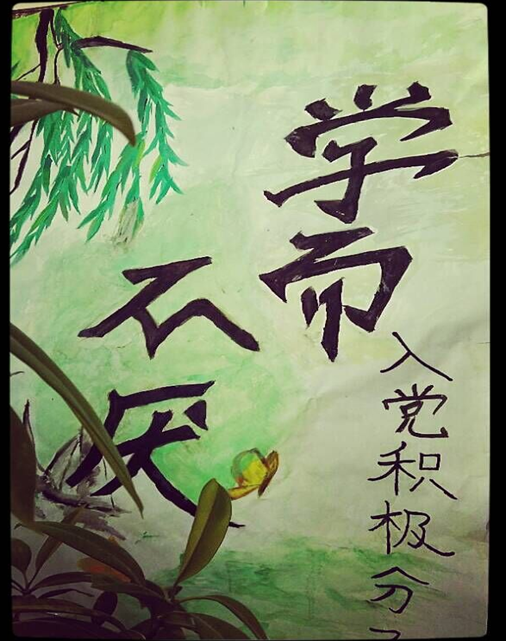 学而
不厌
入党积极分